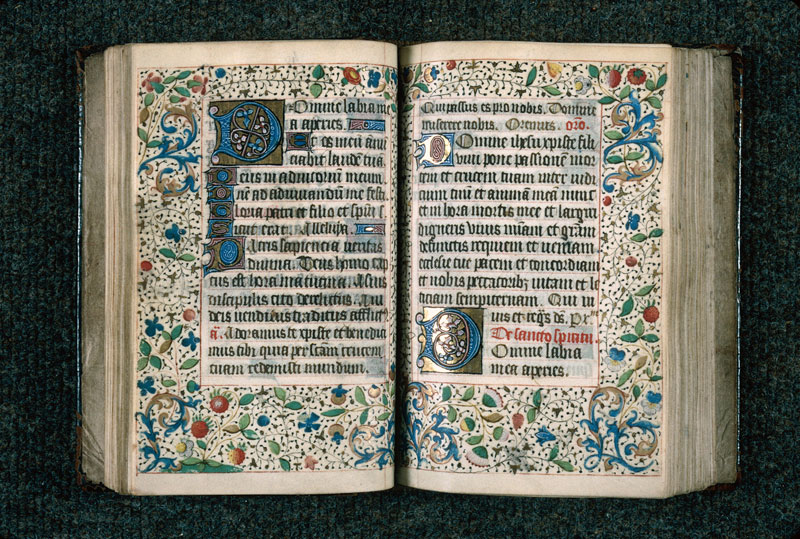 Domine labia me
a aperies.
Et os meū anū
ciabit laudē tuā
Deus in adiutoriū meum
Dn̄e ad adiuuandū me festi
Gloria patri et filio et spūi s
Sicut erat Alleluya.
Patris sapiencia ueritas
diuina. Deus homo cap
tus est hora matutina. A suis
discipulis cito derelictus. A iu
deis uenditus traditus afflict
a. Adoramus te xpiste et benedici
mus tibi quia per scām crucem
tuam redemisti mundum.
Qui passus es pro nobis. Domine
miserere nobis. Oremus. oro.
Domine ihesu xpiste fili
dei uiui pone passionē mor
tem et crucem tuam inter iudi
cium tuū et animā meā nūc
et in hora mortis mee et largiri
digneris uiuis miām et grām
defunctis requiem et ueniam
ecclesie tue pacem et concordiam
et nobis peccatoribz uitam et le
ticiam sempiternam. Qui ui
uis et regs ds. Pr
De sancto spiritu.
Domine labia
mea aperies.